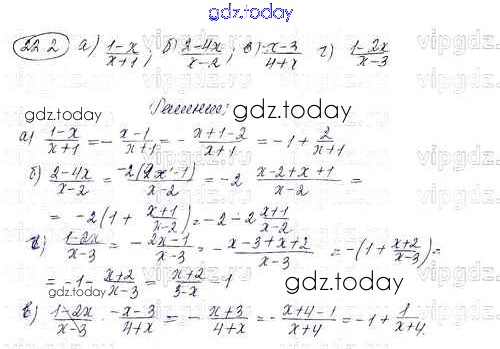 gdz.today
22.2 а) \frac{1-x}{x+1}; б) \frac{2-4x}{x-2}; в) \frac{-x-3}{4+x} г) \frac{1-2x}{x-3}
gdz.today
Решение:
gdz.today
а) \frac{1-x}{x+1} = -\frac{x-1}{x+1} = -\frac{x+1-2}{x+1} = -1+\frac{2}{x+1}
б) \frac{2-4x}{x-2} = \frac{-2(2x-1)}{x-2} = -2 \frac{x-2+x+1}{x-2} =
= -2(1+\frac{x+1}{x-2}) = -2-2\frac{x+1}{x-2}
г) \frac{1-2x}{x-3} = -\frac{2x-1}{x-3} = -\frac{x-3+x+2}{x-3} = -(1+\frac{x+2}{x-3}) =
= -1-\frac{x+2}{x-3} = \frac{x+2}{3-x}-1
gdz.today
в) \frac{1-2x}{x-3} \cdot \frac{-x-3}{4+x} = -\frac{x+3}{4+x} = -\frac{x+4-1}{x+4} = -1+\frac{1}{x+4}.